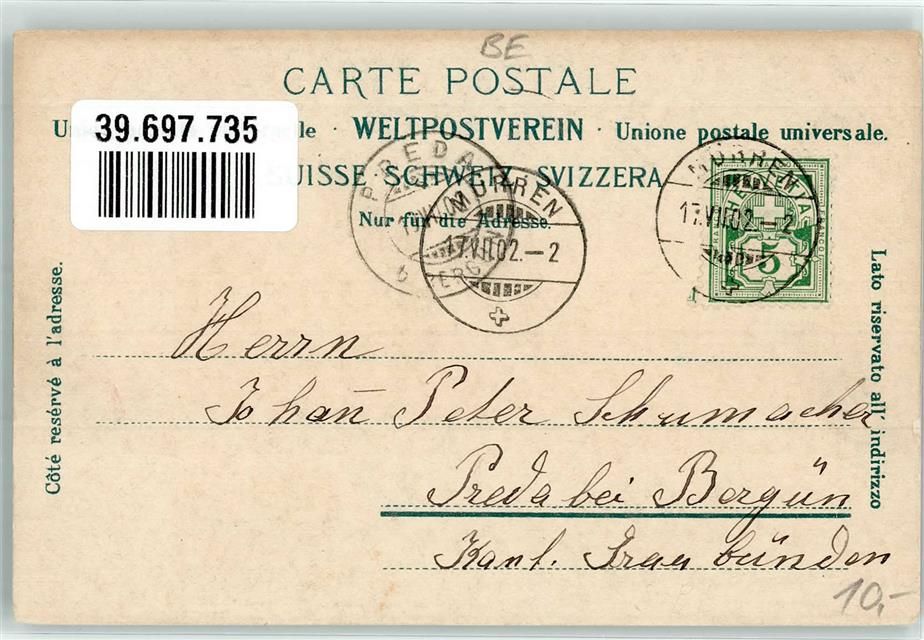 BE
CARTE POSTALE
39.697.735
le · WELTPOSTVEREIN · Unione postale universale.
SUISSE. SCHWEIZ. SVIZZERA.
Nur für die Adresse.
PREDA
MÜRREN
17.VII.02.–2
MÜRREN
17.VII.02.–2
5
Côté resérvé à l'adresse.
Lato riservato all' indirizzo
Herrn
Johañ Peter Schumacher
Preda bei Bergün
Kant. Graubünden
10,-